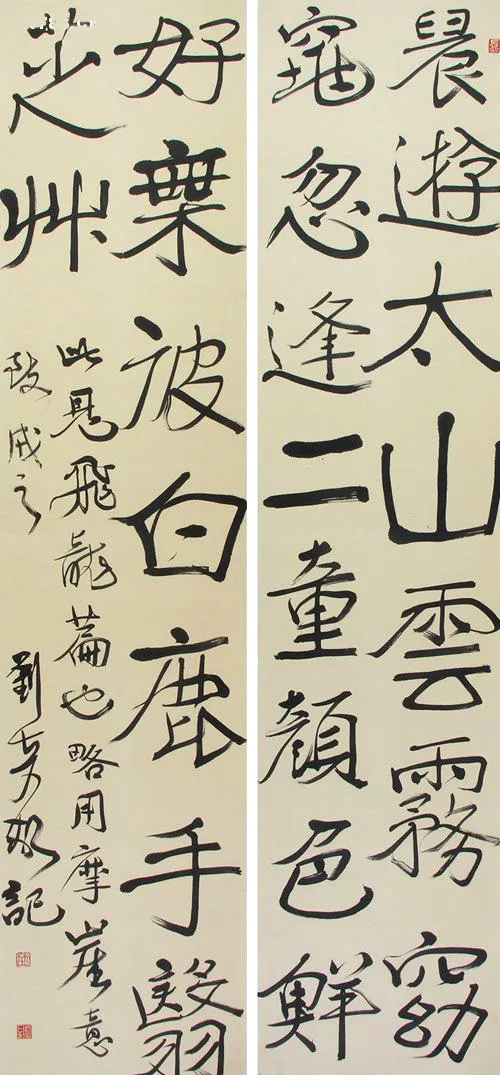 晨遊太山雲霧窈
窕忽逢二童顏色鮮
好乘彼白鹿手翳
芝艸
此見飛龍篇也略用摩崖意
致成之 劉彥湖記